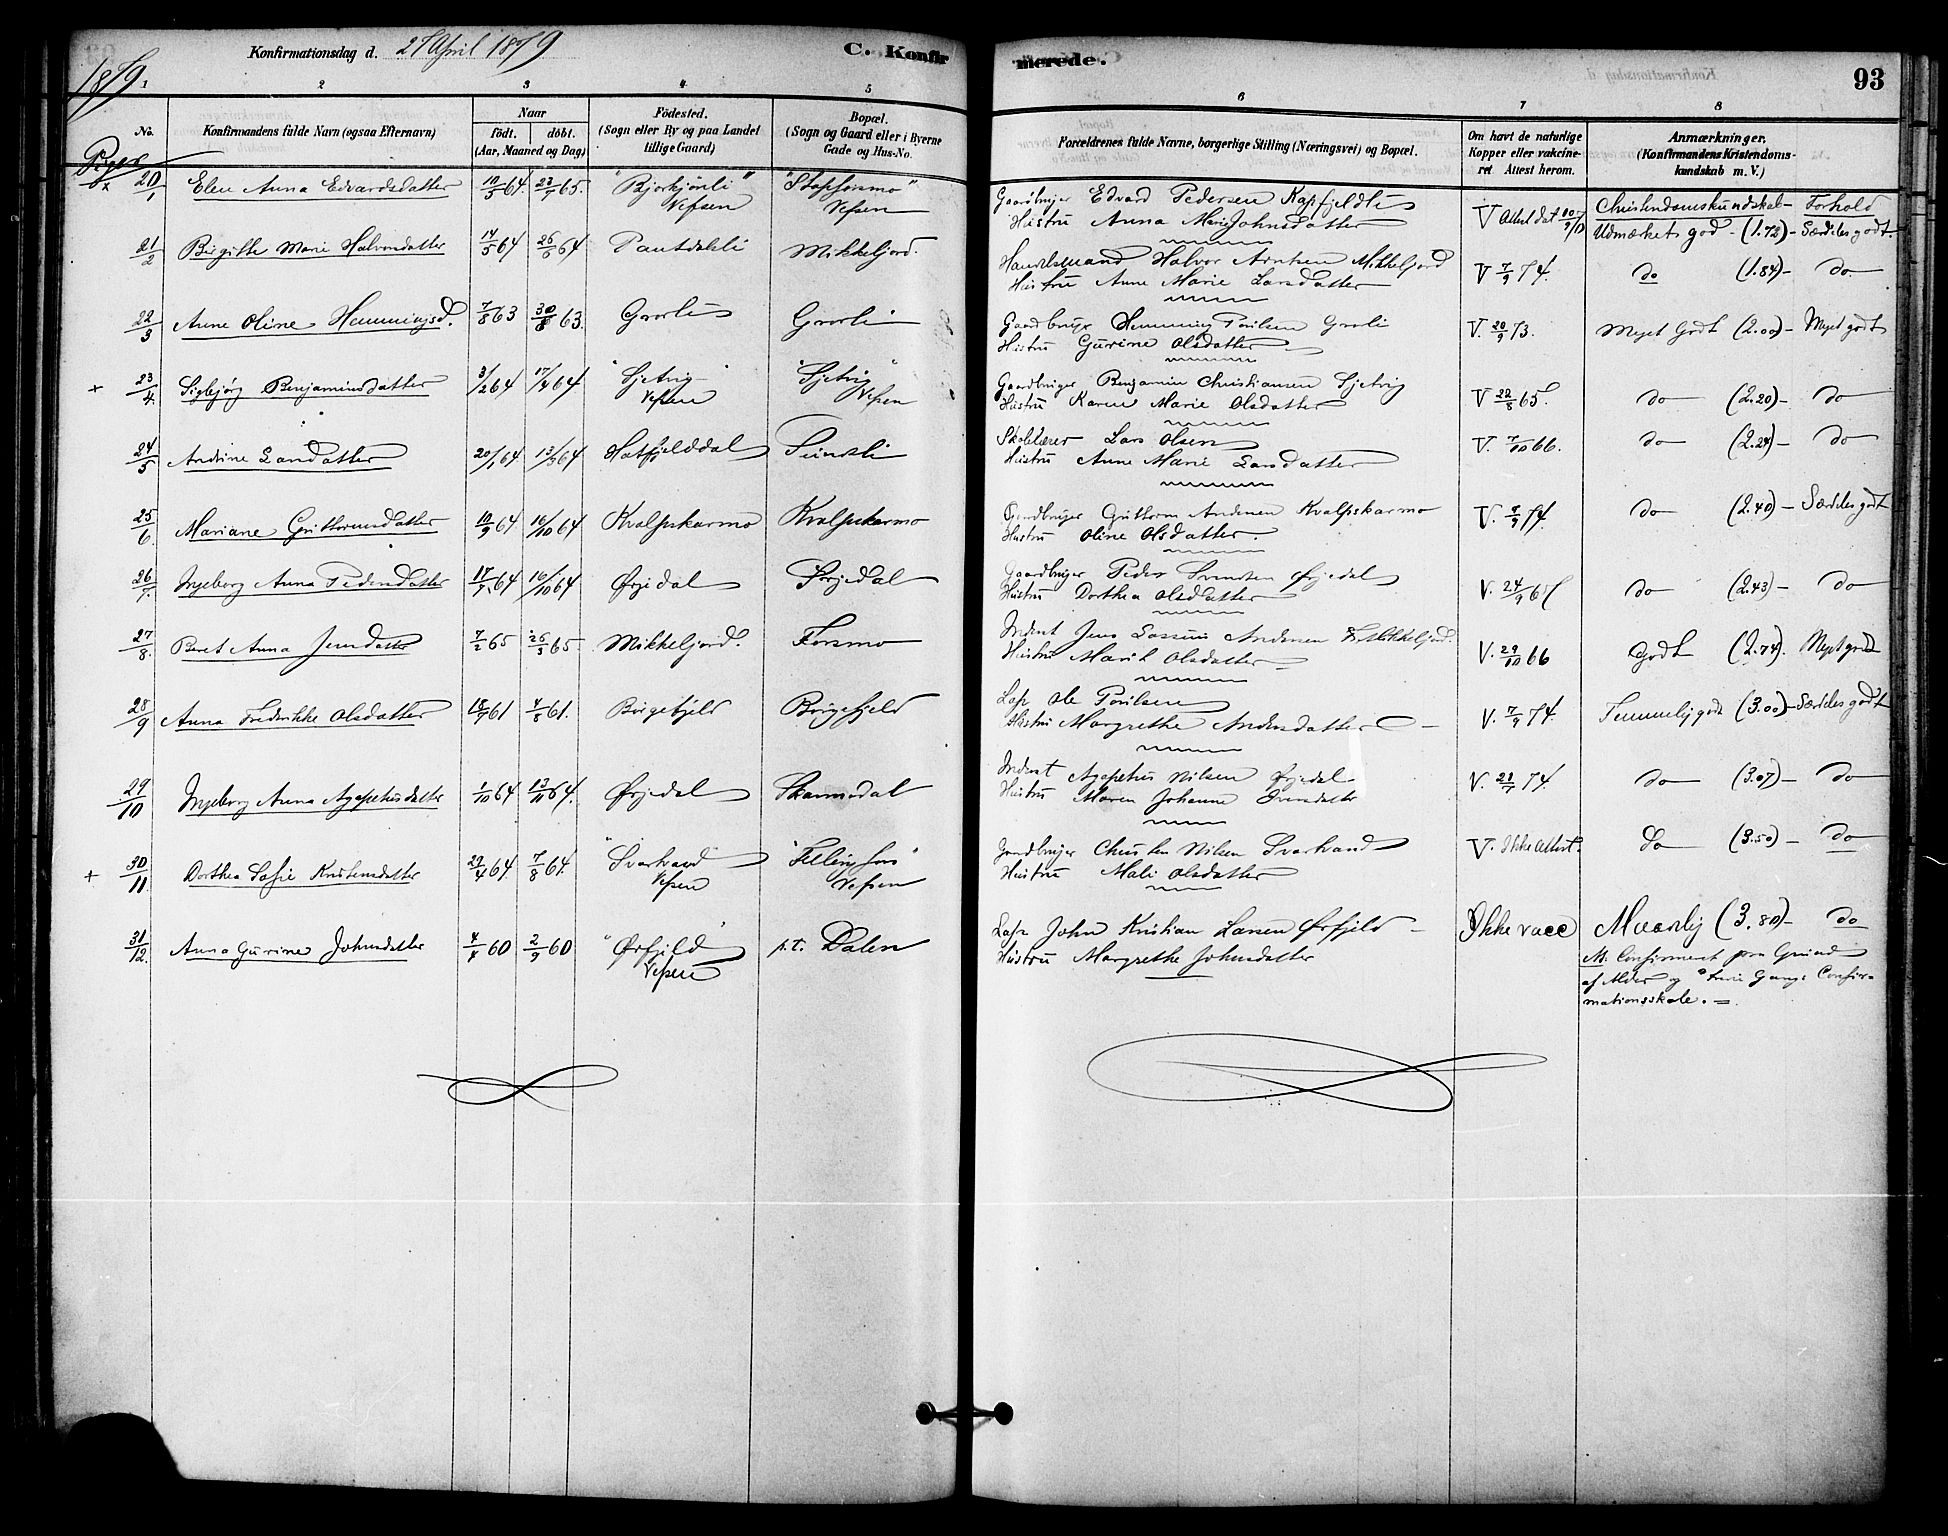 1879.
Konfirmationsdag d. 27 April 1879
C. Konfirmerede.
93
1 2 3 4 5 6 7 8
No.
Konfirmandens fulde Navn (ogsaa Efternavn)
Naar
födt. döbt.
(Aar, Maaned og Dag)
Födested.
(Sogn eller By og paa Landet
tillige Gaard)
Bopæl.
(Sogn og Gaard eller i Byerne
Gade og Hus-No.
Forældrenes fulde Navne, borgerlige Stilling (Næringsvei) og Bopæl.
Om havt de naturlige
Kopper eller vakcine-
ret. Attest herom.
Anmærkninger.
(Konfirmandens Kristendoms-
kundskab m. V.)
Piger
Christendomskundskab - Forhold
x 20/1 Elen Anna Edvardsdatter 10/5 64. 23/7 65. "Bjorkjönli" Vefsen "Stapforsmo" Vefsen
Gaardbruger Edvard Pedersen Kapfjeldli
Hustru Anna Marie Johnsdatter
V Attest dat 10/9 Udmærket god - (1.72) - Særdeles godt.
21/2 Birgitte Marie Halvorsdatter 14/5 64 26/6 64 Pantdalli Mikkeljord.
Handelsmand Halvor Arntsen Mikkeljord
Hustru Anne Marie Larsdatter
V 7/9 74. do (1.84) - do
22/3 Anne Oline Hemmingsd. 7/8 63 30/8 63. Grorli Grorli
Gaardbruger Hemming Poulsen Grorli
Hustru Gurine Olsdatter
V. 20/9 73. Meget Godt (2.00) - Meget godt
+ 23/4. Siglejög Benjaminsdatter 3/2 64 17/4 64. "Sjetvig" Vefsen "Sjetvig" Vefsen
Gaardbruger Benjamin Christiansen Sjetvig
Hustru Karen Marie Olsdatter
V 22/8 65. do (2.20) - do
24/5 Andrine Larsdatter 20/1 64 13/3 64 Hatfjelddal Sundli
Skolelærer Lars Olsen
Hustru Anne Marie Larsdatter
V. 7/10 66. do (2.24) - do
25/6. Mariane Guttormsdatter 10/9 64 16/10 64 Kvalpskarmo Kvalpskarmo
Gaardbruger Guttorm Andersen Kvalpskarmo
Hustru Oline Olsdatter.
V. 4/9 74. do (2.40) - Særdeles godt
26/7. Ingeborg Anna Pedersdatter 17/7 64 16/10 64 Ørjedal Ørjedal
Gaardbruger Peder Svendsen Ørjedal
Hustru Dorthea Olsdatter
V. 24/9 67 do (2.43) - do
27/8. Beret Anna Jensdatter 7/2 65 26/3 65 Mikkeljord. Forsmo
Inderst Jens Andersen Mikkeljord.
Hustru Marit Olsdatter
V. 29/10 66 Godt (2.74). Meget godt
28/9 Anna Fredrikke Olsdatter 18/7 61 4/8 61. Börgefjeld Börgefjeld
Lap Ole Poulsen
Hustru Margrethe Andersdatter
V. 7/9 74. Temmelig godt (3.00) - Særdeles godt
29/10 Ingeborg Anna Agapetusdatter 1/10 64 13/11 64. Ørjedal Skarmodal
Inderst Agapetus Nilsen Ørjedal
Hustru Maren Johanne Iversdatter
V. 28/7 74. do (3.07) - do
+ 30/11. Dorthea Sofie Kristensdatter 29/4 64 7/8 64. "Svartvand" Vefsen "Fellingfors" Vefsen
Gaardbruger Christen Nilsen Svartvand
Hustru Mali Olsdatter
V. Ikke Attest. do (3.50) - do
31/12. Anna Gurine Johnsdatter 4/4 60 2/9 60 "Ørfjeld" Vefsen p.t. Dalen
Lap John Kristian Larsen Ørfjeld
Hustru Margrethe Johnsdatter
Ikke vacc Maadelig (3.80) - do
Confirmeret paa Grund
af Alder og Gangs Confir-
mationsskole.